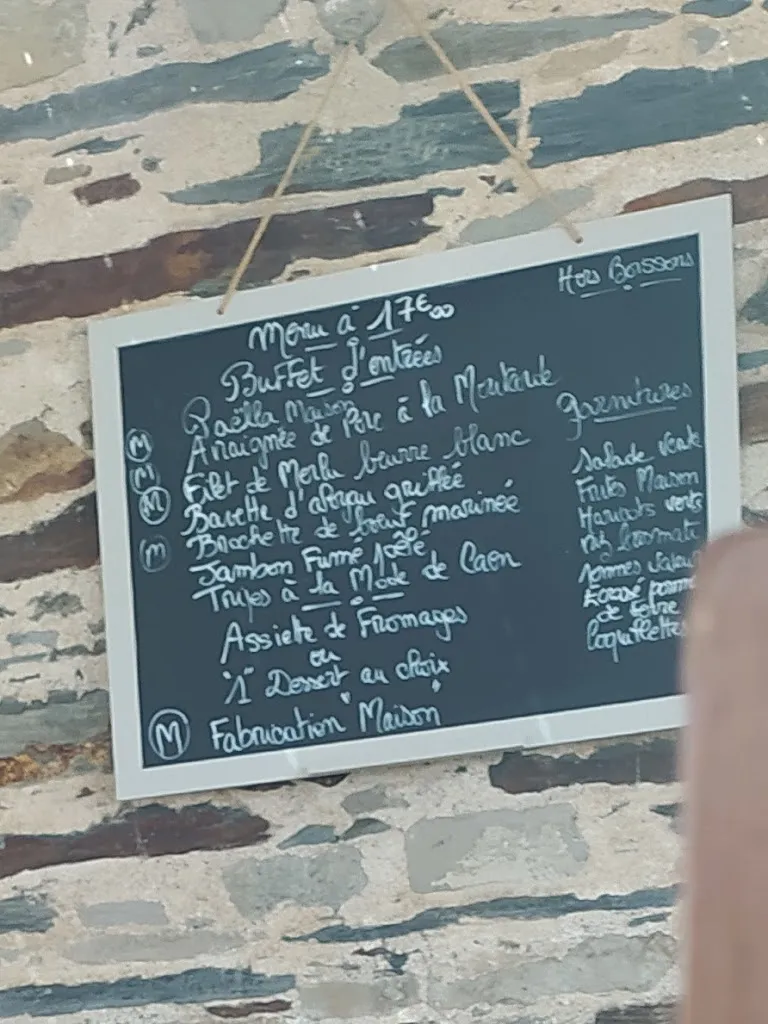 Hors Boissons
Menu à 17€,00
Buffet d'entrées
Paëlla Maison
Ⓜ Araignée de Porc à la Moutarde
Ⓜ Filet de Merlu beurre blanc
Ⓜ Bavette d'aloyau grillée
Brochette de bœuf marinée
Ⓜ Jambon Fumé poêlé
Tripes à la Mode de Caen
Assiette de Fromages
ou
"1" Dessert au choix
Ⓜ Fabrication "Maison"
garnitures
Salade verte
Frites Maison
Haricots verts
Riz
Pommes
Ecrasé pomme
de terre
Coquillettes